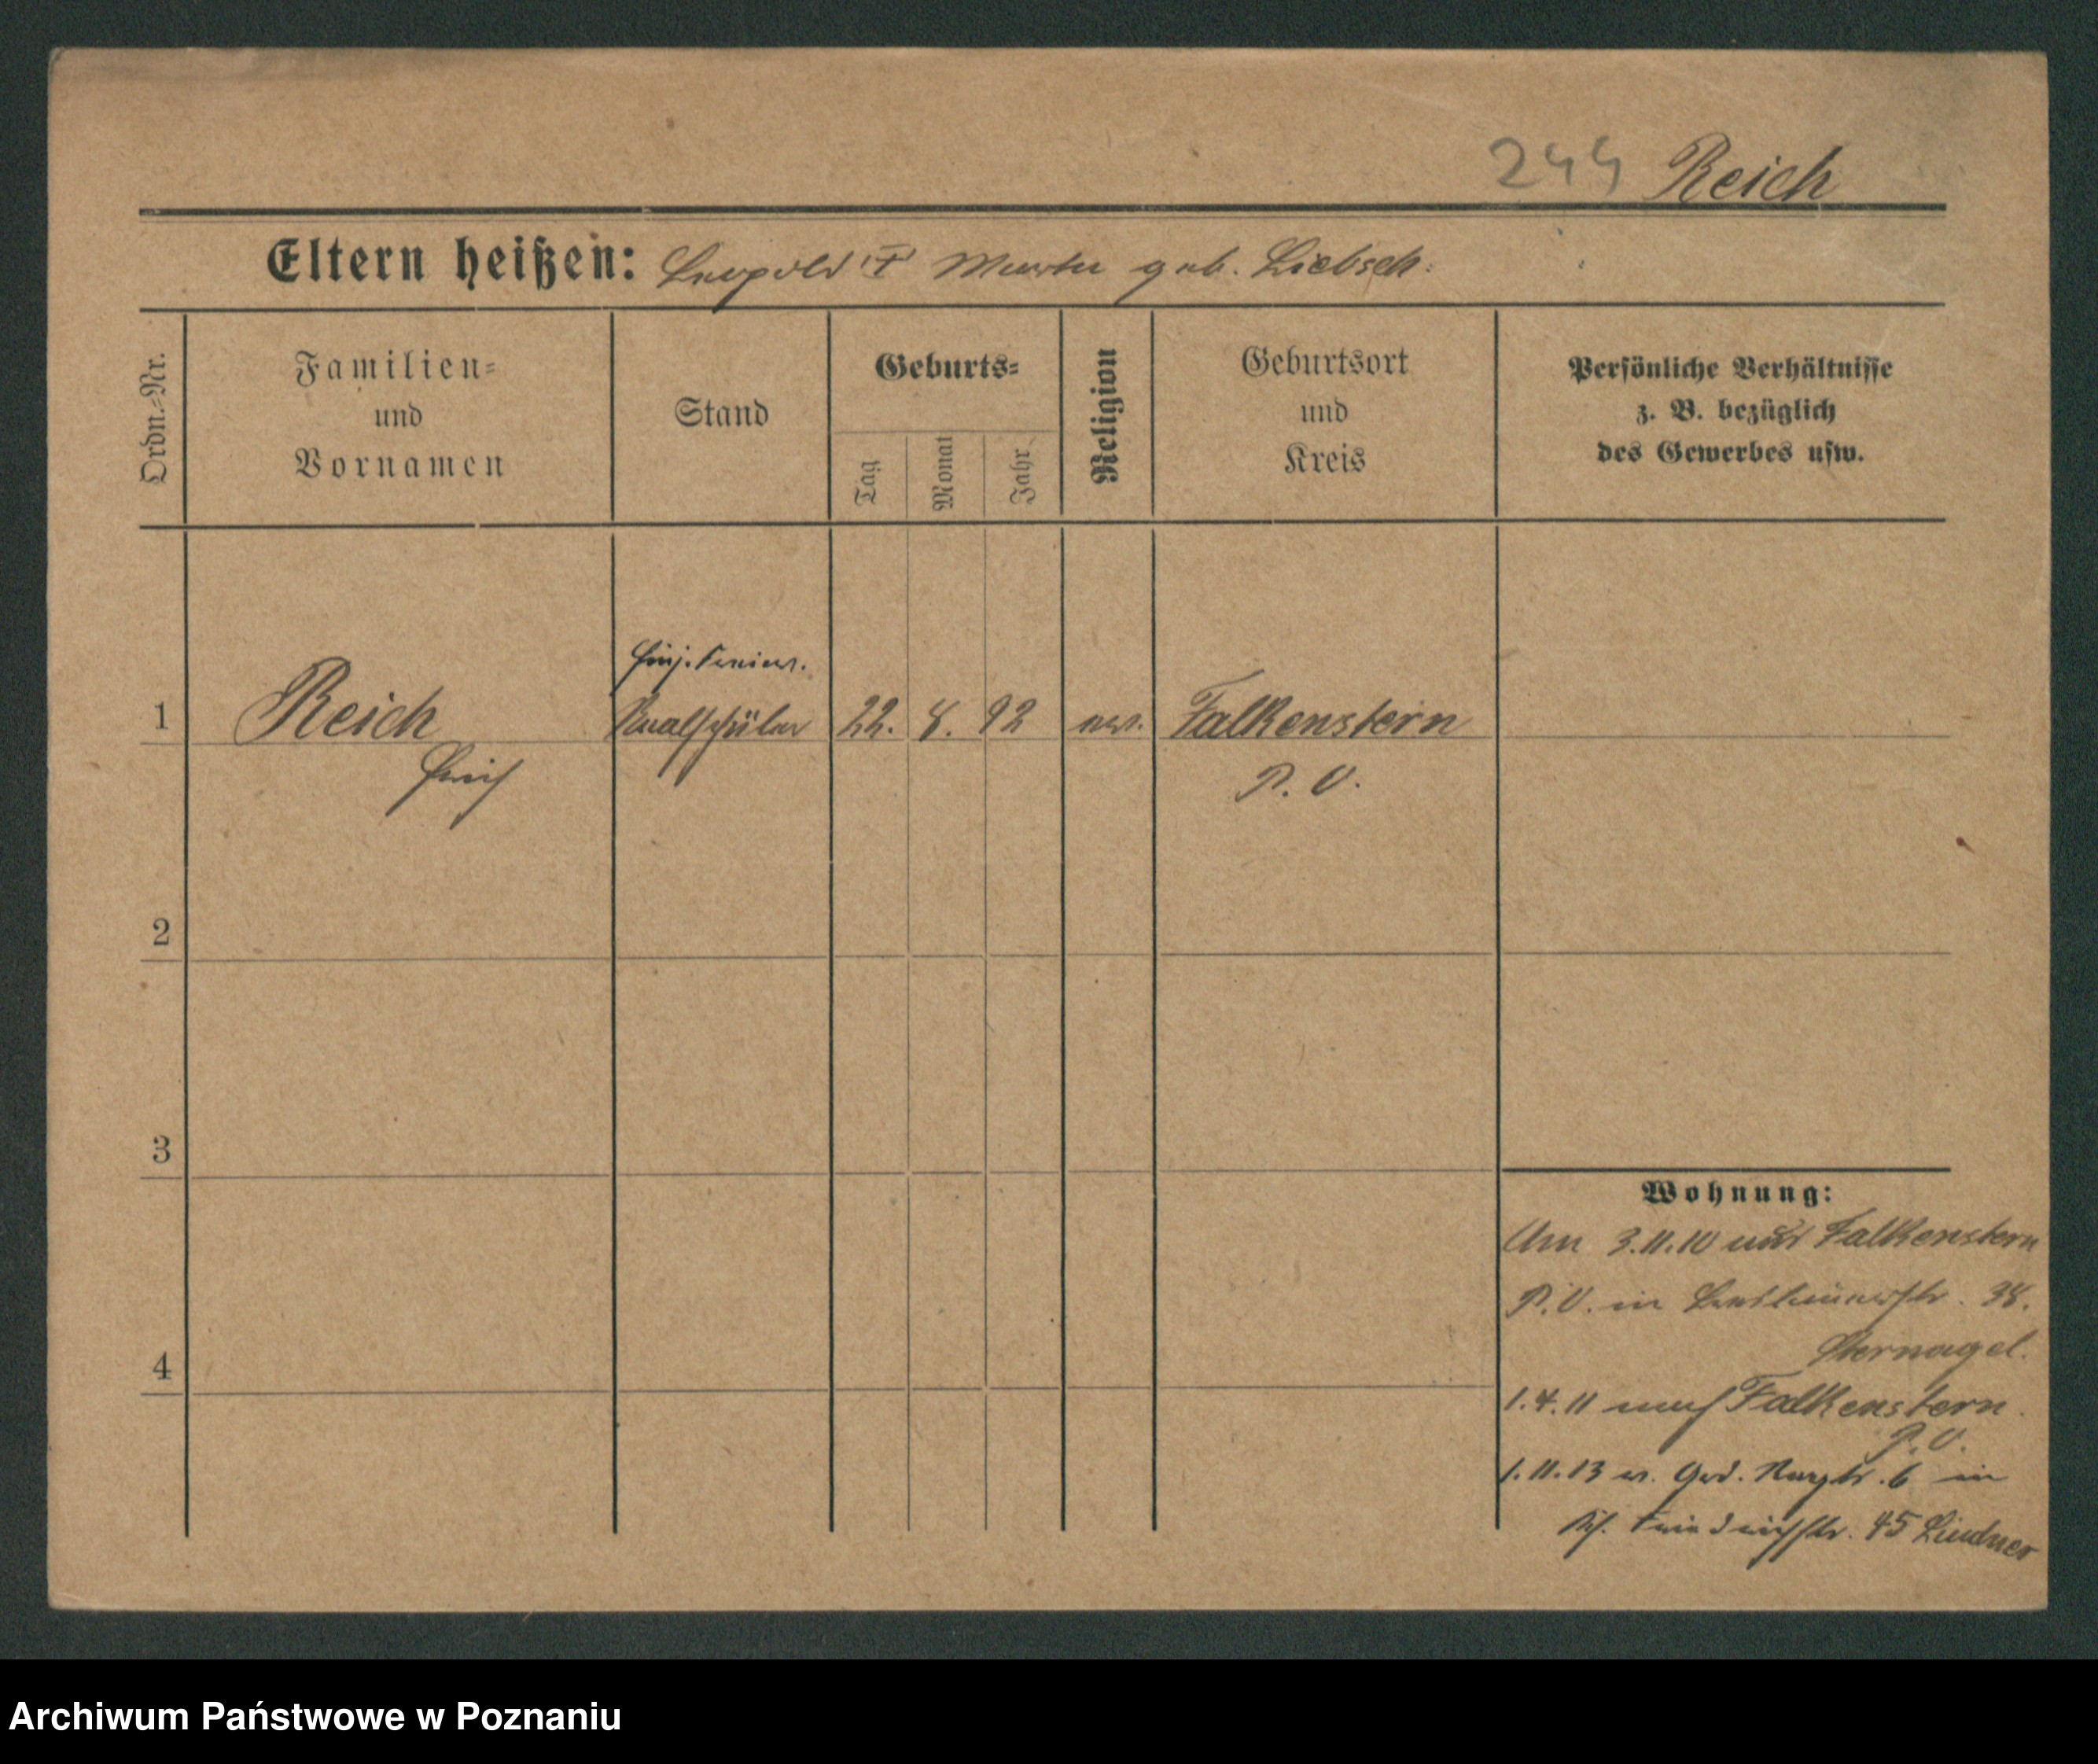 244 Reich
Eltern heißen: Leopold Martha geb. Liebsch.
Ordn.-Nr.
Familien-
und
Vornamen
Stand
Geburts-
Tag
Monat
Jahr
Religion
Geburtsort
und
Kreis
Persönliche Verhältnisse
z. B. bezüglich
des Gewerbes usw.
Einj.
1 Reich Realschüler 22. 8. 92 Falkenstern
Erich P. O.
2
3
Wohnung:
Am 3.11.10 aus Falkenstern
P. O. in 38.
Sternagel.
4
1.4.11 nach Falkenstern.
P. O.
1.11.13 v. 6 in
Friedrichstr. 45 Lindner
Archiwum Państwowe w Poznaniu